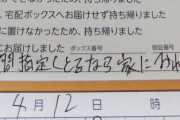 宅配ボックスへお届けせず持ち帰りました
に置けなかったため、持ち帰りました
ボックス番号
暗証番号
間指定しとるなら家に
4月12日 時